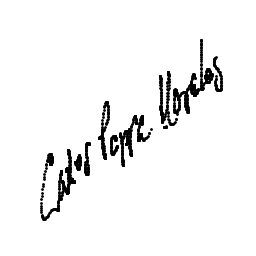 Carlos Poppe Morales